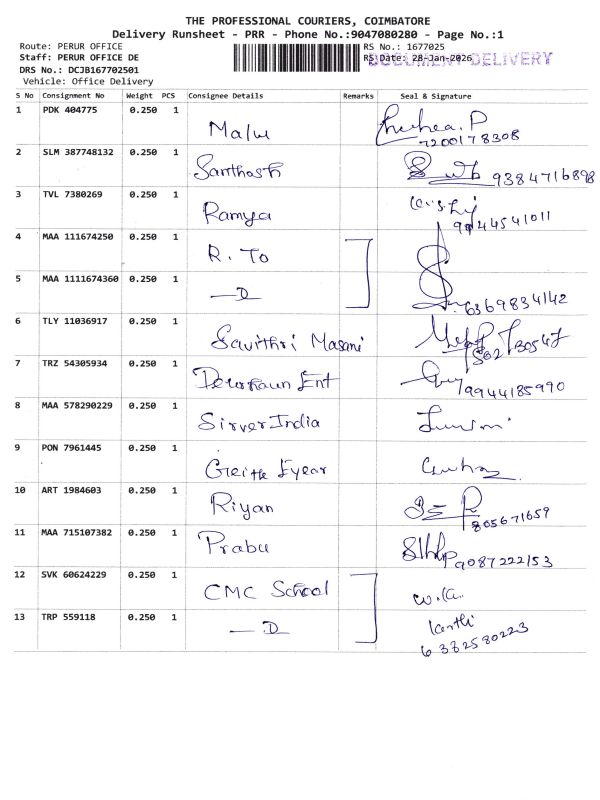 THE PROFESSIONAL COURIERS, COIMBATORE
Delivery Runsheet - PRR - Phone No.:9047080280 - Page No.:1
Route: PERUR OFFICE RS No.: 1677025
Staff: PERUR OFFICE DE RS Date: 28-Jan-2026 DOCUMENT DELIVERY
DRS No.: DCJB167702501
Vehicle: Office Delivery
S No Consignment No Weight PCS Consignee Details Remarks Seal & Signature
1 PDK 404775 0.250 1 Malu
7200178308
2 SLM 387748132 0.250 1 Santhosh 9384716898
3 TVL 7380269 0.250 1 Ramya
9944541011
4 MAA 111674250 0.250 1 R. To
5 MAA 1111674360 0.250 1 — D 6369834142
6 TLY 11036917 0.250 1 Savithri Masani
7 TRZ 54305934 0.250 1 Ent 9944185990
8 MAA 578290229 0.250 1 Sirver India
9 PON 7961445 0.250 1 Eyear
10 ART 1984603 0.250 1 Riyan 805671659
11 MAA 715107382 0.250 1 Prabu 9087222153
12 SVK 60624229 0.250 1 CMC School
13 TRP 559118 0.250 1 — D Karthi
6382580223